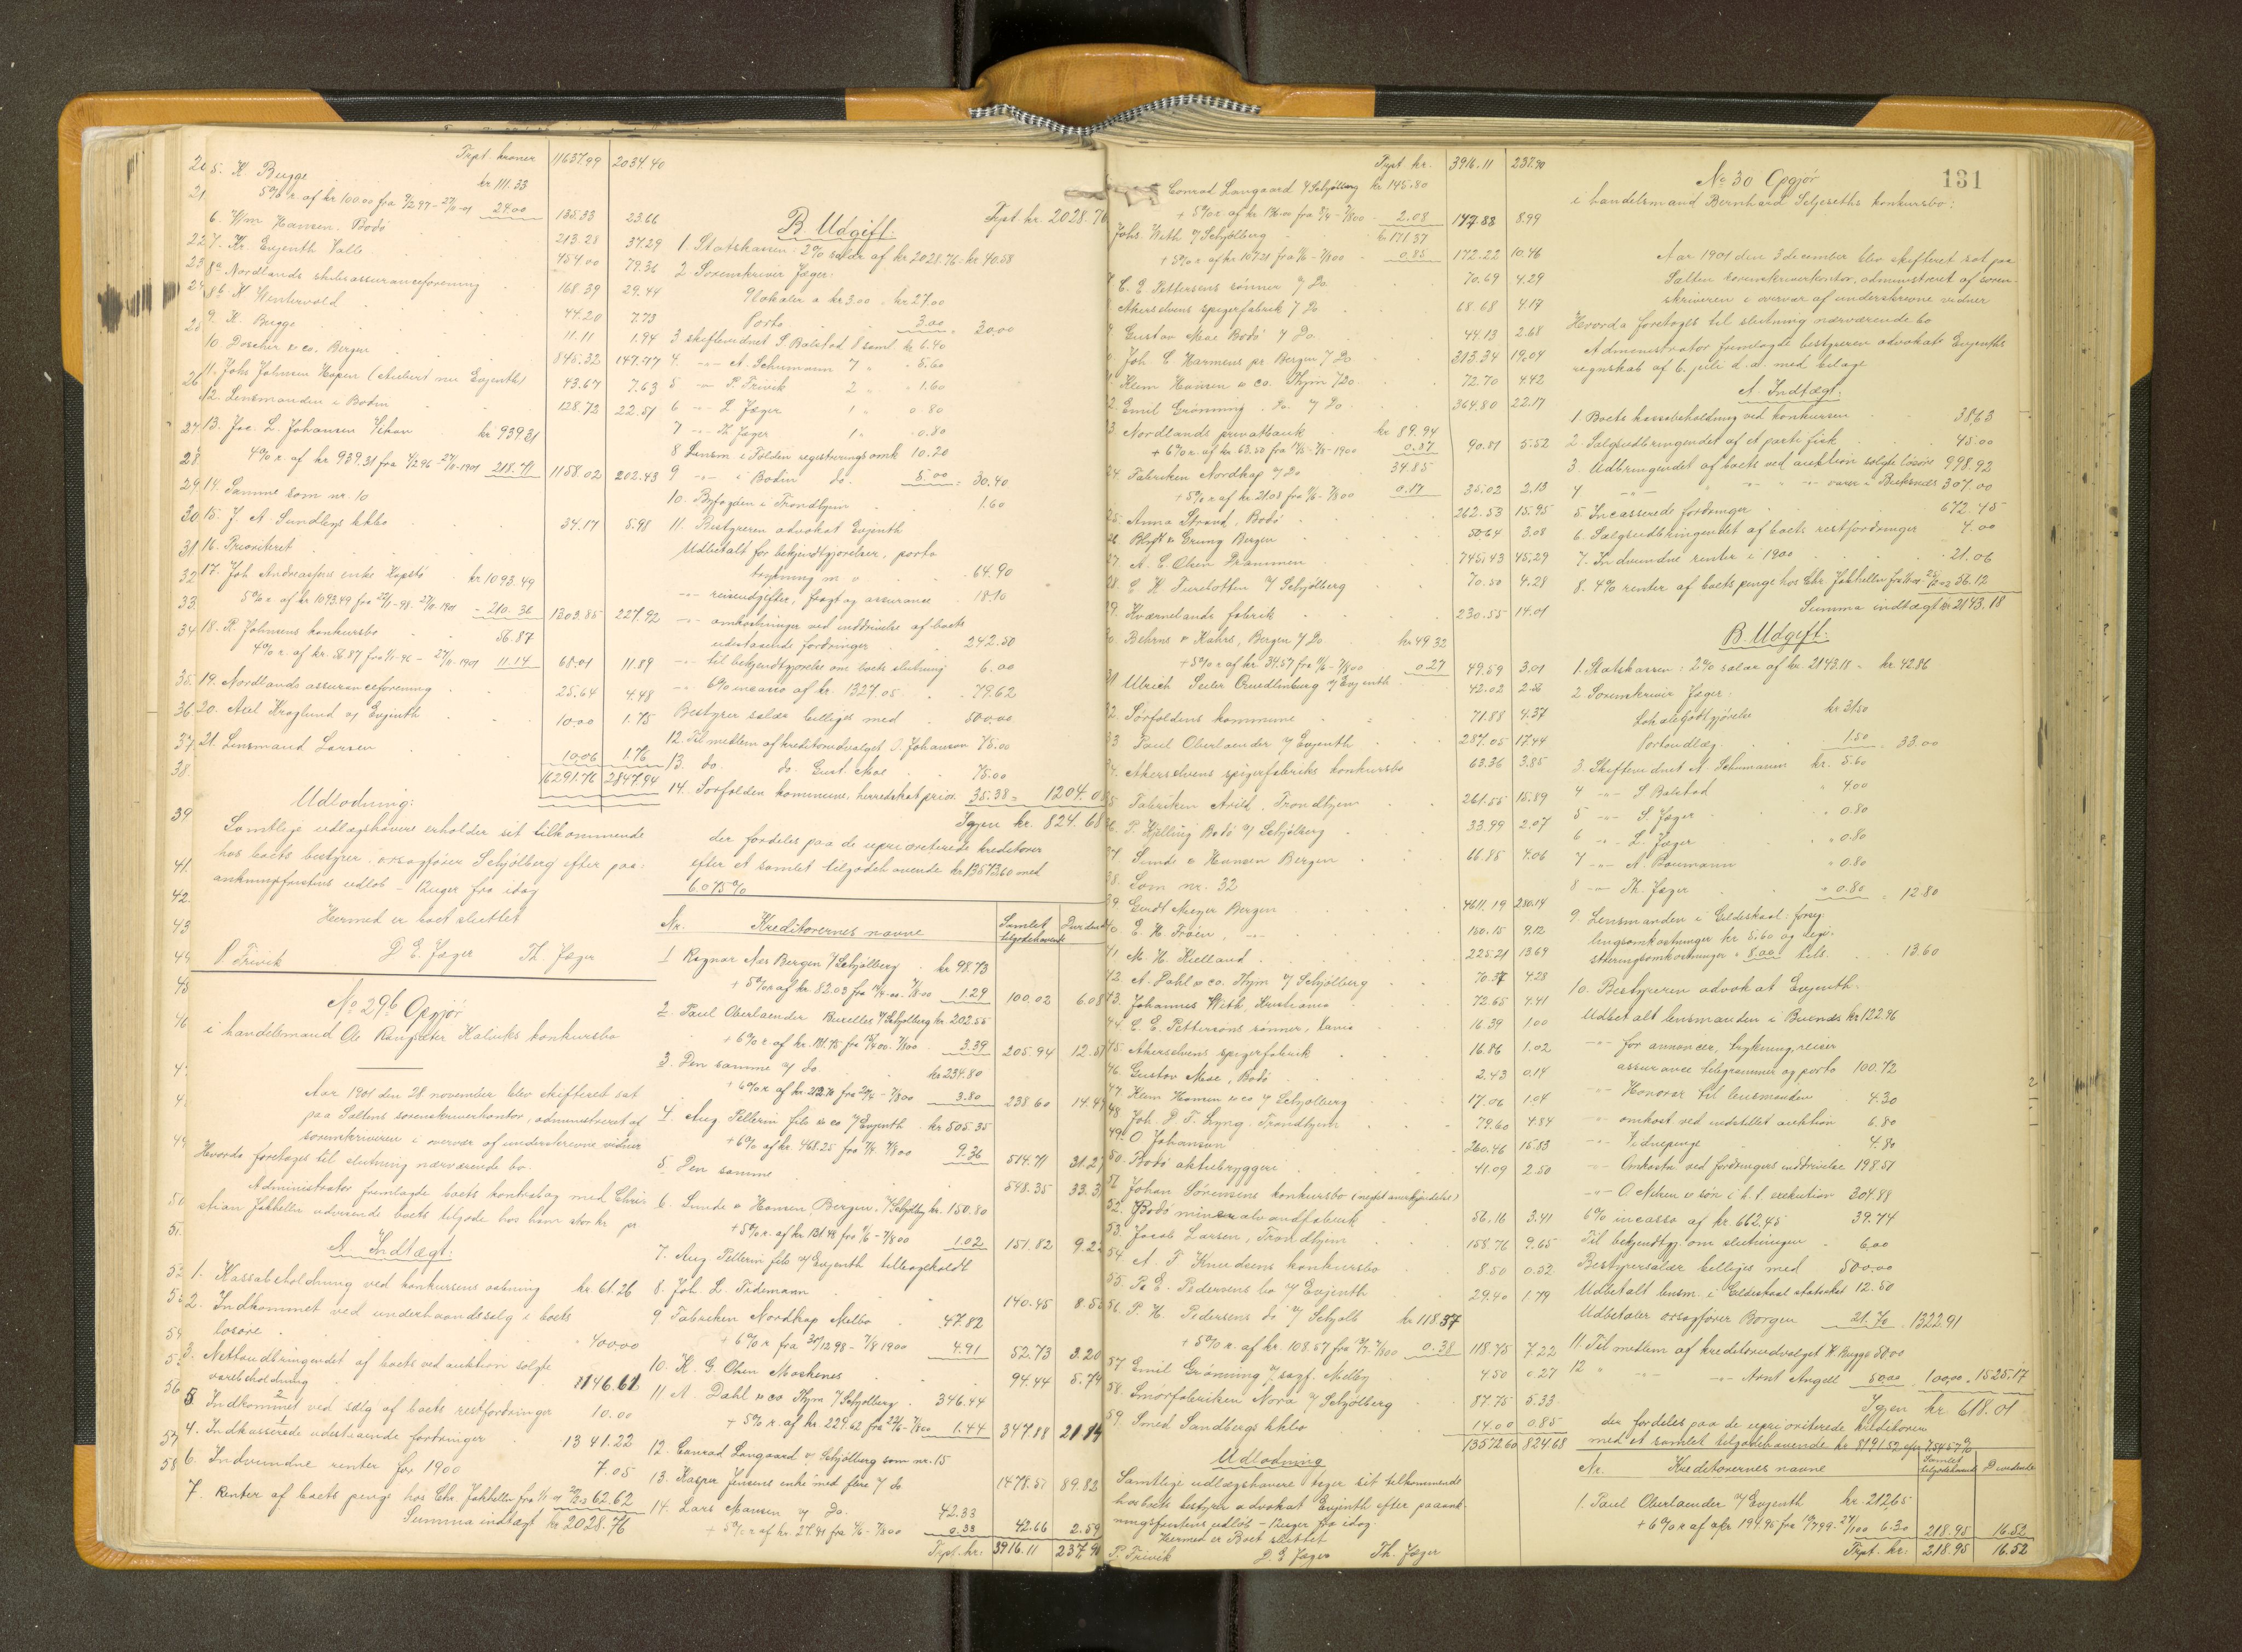 Trpt. kroner 11637.99 2034.40
5. K Bugge kr 111.33
5% r. af kr 100.00 fra 24.00 135.33 23.66
6. Wm Hansen. Bodø 213.28 37.29
7. Kr. Evjenth Valle 454.00 79.36
8a Nordlands skibsassuranceforening 168.39 29.44
8b K Wintervold 44.20 7.73
9. K. Bugge 11.11 1.94
10 Doscher & co. Bergen 845.32 147.77
11. Johs Johnsen Hopen (Aubert nu Evjenth) 43.67 7.63
12. Lensmanden i Bodin 128.72 22.51
13. Jac. L. Johansen Vikan kr 939.31
4% r. af kr 939.31 fra 218.71 1158.02 202.43
14. Samme som nr. 10
15. J. A Sundbys kkbo 34.17 5.98
16. Prioriteret
17. Joh Andreasens enke Kopstø kr 1093.49
5% r af kr 1093.49 fra 210.36 1303.85 227.92
18. R. Johnsens konkursbo 56.87
4% r. af kr. 56.87 fra 11.14 68.01 11.89
19. Nordlands assuranceforening 25.64 4.48
20. Axel Kroglund v/ Evjenth 10.00 1.75
21. Lensmand Larsen 10.06 1.76
16291.76 2847.94
Udlodning:
Samtlige udlægshavere erholder sit tilkommende
hos boets bestyrer, orsagfører Schjølberg efter paa-
ankumpfristens udløb - 12 uger fra idag
Hermed er boet sluttet
P Trivik D E. Jæger Th Jæger
No 29b Opgjør
i handelsmand Ole Rangsæter Kalviks konkursbo
Aar 1901 den 28 november blev skifteret sat
paa Saltens sorenskriverkontor, administreret af
sorenskriveren i overvær af underskrevne vidner
Hvorda foretages til slutning nærværende bo.
Administrator fremlagde boets kontrabog med Chris-
tian Jakhelln udvisende boets tilgode hos ham stor kr pr
A. Indtægt:
1. Kassabeholdning ved konkursens aabning kr 61.26
2. Indkommet ved underhaandssalg i boets
løsøre 400.00
3. Nettoudbringendet af boets ved auktion solgte
varebeholdning 146.61
5 Indkommet ved salg af boets restfordringer 10.00
4. Indkasserede udestaaende fordringer 1341.22
6. Indvundne renter for 1900 7.05
7. Renter af boets penge hos Chr. Jakhelln fra 62.62
Summa indtægt kr 2028.76
Trpt. kr. 2028.76
B. Udgift:
1. Statskassen: 2% salær af kr 2028.76 = kr 40.58
2. Sorenskriver Jæger:
9 lokaler a kr 3.00 = kr 27.00
Porto 3.00 = 30.00
3 skiftevidnet S Balstad 8 saml kr 6.40
4. -"- A. Schumann 7 " 5.60
5 -"- P. Trivik 2 " 1.60
6 -"- L Jæger 1 " 0.80
7 -"- Th Jæger 1 " 0.80
8 Lensm i Folden registreringsomk 10.20
9 -"- i Bodin do. 5.00 = 30.40
10. Byfogden i Trondhjem 1.60
11. Bestyreren advokat Evjenth
Udbetalt for bekjendtgjørelser, porto
trykning m v 64.90
-"- reiseudgifter, fragt og assurance 18.10
-"- omkostninger ved inddrivelse af boets
udestaaende fordringer 242.50
-"- til bekjendtgjørelse om boets slutning 6.00
-"- 6% incasso af kr. 1327.05 79.62
Bestyrer salær billiges med 500.00
12. Til medlem af kreditorudvalget O. Johansen 75.00
13. do. do. Gust. Moe 75.00
14. Sørfolden kommune, herredskat prior. 35.38 = 1204.08
Igjen kr. 824.68
der fordeles paa de uprioriterede kreditorer
efter et samlet tilgodehavende kr 13573.60 med
6.075%
Nr. Kreditorernes navne Samlet tilgodehavende Dividende
1 Ragnar Næs Bergen v/ Schjølberg kr 98.73
+ 5% r af kr. 82.03 fra 1.29 100.02 6.08
2. Paul Oberlaender Buxelles v/ Schjølberg kr. 202.55
+ 6% r. af kr. 181.75 fra 3.39 205.94 12.51
3. Den samme v/ do. kr 234.80
+ 6% r. af kr. 212.70 fra 3.80 238.60 14.49
4. Aug Pellerin fils & co v/ Evjenth kr 505.35
+ 6% af kr. 468.25 fra 9.36 514.71 31.27
5. Den samme 548.35 33.31
6. Sunde & Hansen Bergen, v/ Schjølbg kr. 150.80
+ 5% r. af kr 131.48 fra 1.02 151.82 9.22
7. Aug Pellerin fils v/ Evjenth tilbagekaldt
8. Joh. L. Tidemann 140.45 8.53
9 Fabriken Nordkap Melbo 47.82
+ 6% r fra 30/12 98 - 7/8 1900 4.91 52.73 3.20
10. K. G. Olsen Moskenes 94.44 5.74
11 A. Dahl & co Thjm v/ Schjølberg 346.44
+ 5% r. af kr 229.62 fra 1.44 347.88 21.14
12. Conrad Langaard v. Schjølberg som nr. 15
13. Kasper Jensens enke med flere v/ do 1478.51 89.82
14. Lars Mausen v/ Do. 42.33
+ 5% r af kr. 27.41 fra 0.33 42.66 2.59
Trpt. kr: 3916.11 237.90
Trpt kr. 3916.11 237.90
Conrad Langaard v/ Schjølberg kr 145.80
+ 5% r. af kr 2.08 147.88 8.99
Johs. With v/ Schjølberg kr 171.37
+ 5% r. af kr fra 0.85 172.22 10.46
C. E Pettersens sønner v/ Do. 70.69 4.29
Akerselvens spigerfabrik v/ Do 68.68 4.17
Gustav Moe Bodø v/ Do. 44.13 2.68
Joh. C Harmens pr Bergen v/ Do 313.34 19.04
Klem Hansen & co. Thjm v/ Do. 72.70 4.42
Emil Grønning. Do. v/ Do. 364.80 22.17
Nordlands privatbank kr 89.94
+ 6% r. af kr. 63.50 fra 0.87 90.81 5.52
24. Fabriken Nordkap v/ Do 34.85
+ 5% r af kr. 21.08 fra 0.17 35.02 2.13
25. Anna Strand, Bodø 262.53 15.95
26. Blyt & Grung Bergen 50.64 3.08
27. A. C Olsen Drammen 745.43 45.29
28. C K Turebotten v/ Schjølberg 70.50 4.28
29. Kværnelands fabrik 230.55 14.01
30. Behrns & Kahrs, Bergen v/ Do. kr 49.32
+ 5% r. af kr 34.57 fra 0.27 49.59 3.01
31 Ulrich Seiler Quedlinburg v/ Evjenth 42.02 2.56
32. Sørfoldens kommune 71.88 4.37
33 Paul Oberlaender v/ Evjenth 287.05 17.44
34. Akerselvens spigerfabriks konkursbo 63.36 3.85
35 Fabriken Arild. Trondhjem 261.55 15.89
36. P. Kjelling Bodø v/ Schjølberg 33.99 2.07
37. Sunde & Hansen Bergen 66.85 4.06
38. Som nr. 32
39. Gerdt Meyer Bergen 4611.19 280.14
40. E. H. Frøen, -"- 150.15 9.12
41 M. H. Kielland 225.21 13.69
42. A. Dahl & co. Thjm v/ Schjølberg 70.37 4.28
43. Johannes With, Kristiania 72.65 4.41
44. C. E. Pettersons sønner, Xania 16.39 1.00
45. Akerselvens spigerfabrik 16.86 1.02
46. Gustav Moe, Bodø 2.43 0.14
47. Klem Hansen & co v/ Schjølberg 17.06 1.04
48 Joh. P. T. Lyng, Trondhjem 79.60 4.84
49 O Johansen 260.46 15.83
50. Bodø aktiebryggeri 41.09 2.50
51 Johan Sørensens konkursbo (neget anerkjendelse)
52. Bodø mineralvandfabrik 56.16 3.41
53. Jacob Larsen, Trondhjem 158.76 9.65
54 A. F Knudsens konkursbo 8.50 0.52
55. P. E. Pedersens bo v/ Evjenth 29.40 1.79
56. P. H. Pedersens do v/ Schjølb kr 118.37
+ 5% r. af kr. 108.57 fra 0.38 118.75 7.22
57 Emil Grønning v/ sagf. Melby 4.50 0.27
58. Smørfabriken Nora v/ Schjølberg 87.75 5.33
59. Smed Sandbergs kkbo 14.00 0.85
13572.60 824.68
Udlodning
Samtlige udlægshavere tager sit tilkommende
hos boets bestyrer advokat Evjenth efter paaank-
ningsfristens udløb - 12 uger fra idag.
Hermed er Boet sluttet
P. Trivik D E Jæger Th. Jæger
131
No 30 Opgjør
i handelsmand Bernhard Seljeseths konkursbo:
Aar 1901 den 3 december blev skifteret sat paa
Salten sorenskriverkontor, administreret af soren-
skriveren i overvær af underskrevne vidner
Hvorda foretages til slutning nærværende bo
Administrator fremlagde bestyreren advokat Evjenths
regnskab af 6. juli d.a. med bilage
A. Indtægt:
1 Boets kassabeholdning ved konkursen 38.63
2. Salgsudbringendet af et parti fisk 45.00
3. Udbringendet af boets ved auktion solgte løsøre 998.92
4 -"- -"- -"- varer i Buksnæs 307.00
5 Incasserede fordringer 672.45
6. Salgsudbringendet af boets restfordringer 4.00
7. Indvundne renter i 1900 21.06
8. 4% renter af boets penge hos Chr. Jakhelln fra 36.12
Summa indtægt kr 2143.18
B. Udgift:
1. Statskassen: 2% salær af kr. 2143.18 = kr. 42.86
2. Sorenskriver Jæger:
Lokalegodtgjørelse kr 31.50
Portoudlæg 1.50 = 33.00
3. Skiftevidnet A. Schumann kr. 5.60
4 -"- S Balstad 4.00
5 -"- S. Jæger 0.80
6 -"- L. Jæger 0.80
7 -"- A. Baumann 0.80
8 -"- Th. Jæger 0.80 = 12.80
9. Lensmanden i Gildeskaal: forsg-
lingsomkostninger kr 5.60 og regi-
streringsomkostninger 8.00 tils. 13.60
10. Bestyreren advokat Evjenth.
Udbetalt lensmanden i Buxnæs kr 122.96
-"- for annoncer, trykning, reiser
assurance telegrammer og porto 100.72
-"- Honorar til lensmanden 4.30
-"- omkost ved indstillet auktion 6.80
-"- Vidnepenge 4.80
-"- Omkostn ved fordringers inddrivelse 198.51
-"- O Nilsen & søn i h. t. exekution 304.98
6% incasso af kr. 662.45 39.74
Til bekjendtgj. om slutningen 6.00
Bestyrersalær billiges med 500.00
Udbetalt lensm. i Gildeskaal 12.50
Udbetaler orsagfører Borgen 21.70 1322.91
11. Til medlem af kreditorudvalget K. Bugge 50.00
12 " -"- -"- Arnt Angell 50.00 100.00 = 1525.17
Igjen kr. 618.01
der fordeles paa de uprioriterede kreditorer
med et samlet tilgodehavende kr 8191.52 efter 7.5457%
Nr. Kreditorernes navne Samlet tilgodehavende Dividende
1. Paul Oberlaender v/ Evjenth kr. 212.65
+ 6% r af kr 194.95 fra 6.30 218.95 16.52
Trpt. kr: 218.95 16.52